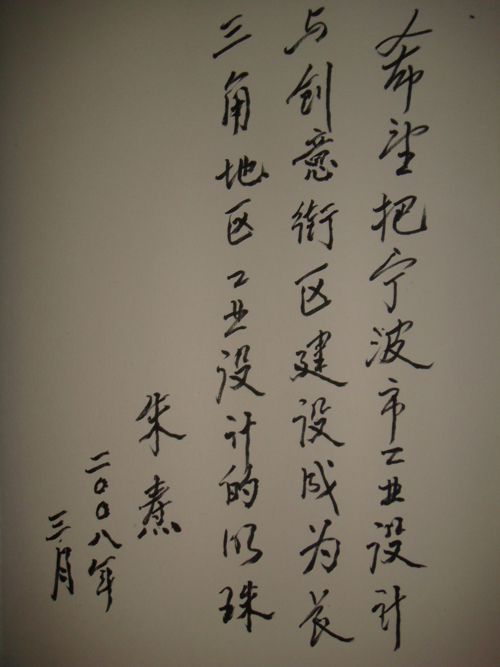 希望把宁波市工业设计
与创意街区建设成为长
三角地区工业设计的明珠
朱焘
二〇〇八年
三月